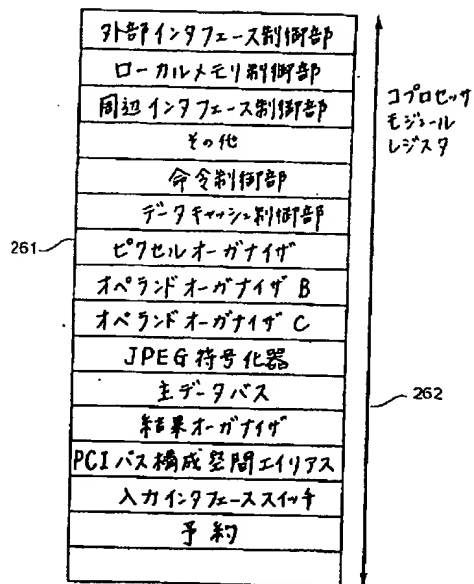 外部インタフェース制御部
ローカルメモリ制御部
周辺インタフェース制御部
その他
命令制御部
データキャッシュ制御部
ピクセルオーガナイザ
オペランドオーガナイザ B
オペランドオーガナイザ C
JPEG符号化器
主データバス
結果オーガナイザ
PCIバス構成空間エイリアス
入力インタフェーススイッチ
予約
コプロセッサ
モジュール
レジスタ
261
262